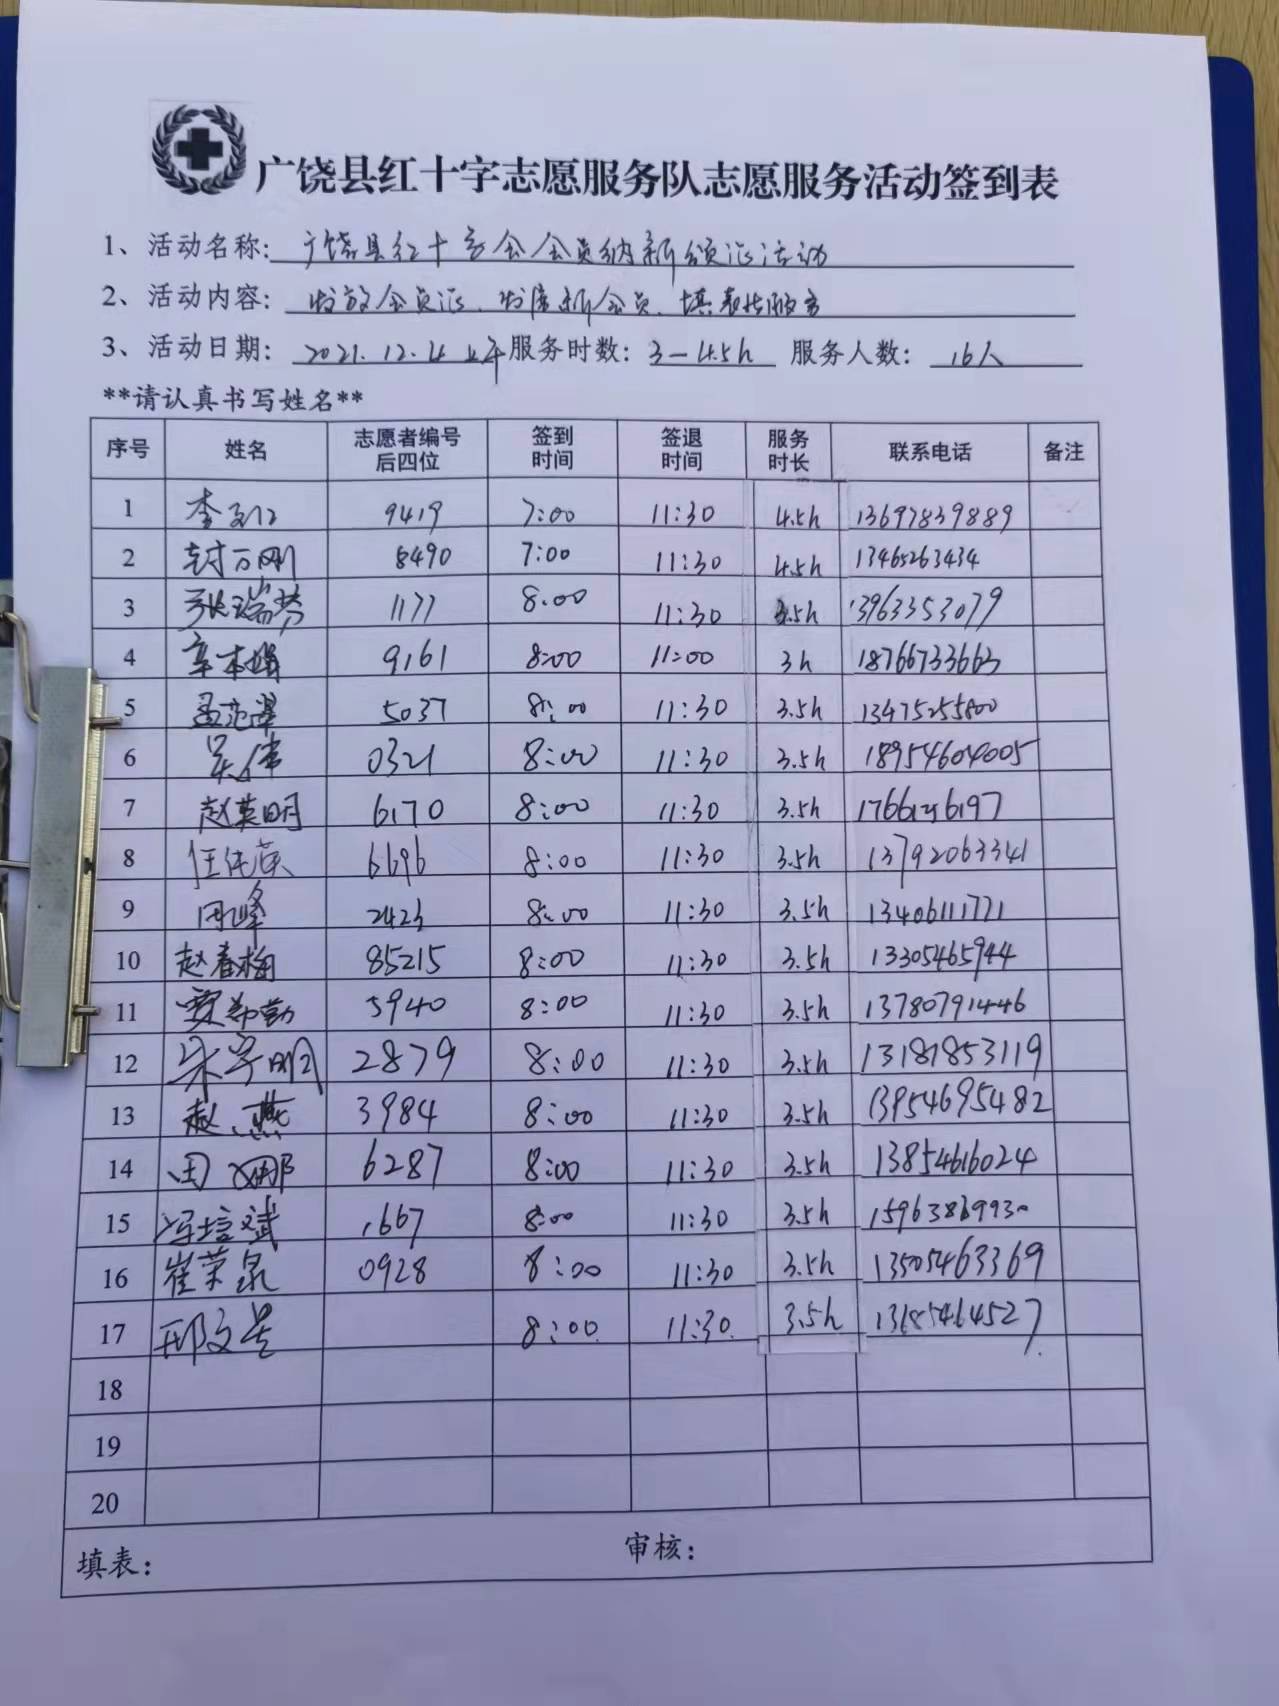 广饶县红十字志愿服务队志愿服务活动签到表
1、活动名称: 广饶县红十字会会员纳新颁证活动
2、活动内容: 发放会员证、发展新会员、填表
3、活动日期: 2021.12.4 上午 服务时数: 3-4.5h 服务人数: 16人
**请认真书写姓名**
序号 姓名 志愿者编号后四位 签到时间 签退时间 服务时长 联系电话 备注
1 李 9419 7:00 11:30 4.5h 13697839889
2 封万刚 8490 7:00 11:30 4.5h 13465263434
3 张瑞芳 1177 8:00 11:30 3.5h 13963353079
4 辛本娟 9161 8:00 11:00 3h 18766733663
5 孟范翠 5037 8:00 11:30 3.5h 13475255800
6 吴伟 0321 8:00 11:30 3.5h 18954604005
7 赵英明 6170 8:00 11:30 3.5h
8 任 6696 8:00 11:30 3.5h 13792063341
9 周峰 2423 8:00 11:30 3.5h 13406111771
10 赵春梅 85215 8:00 11:30 3.5h 13305465944
11 贾 5940 8:00 11:30 3.5h 13780791446
12 宋学明 2879 8:00 11:30 3.5h 13181853119
13 赵燕 3984 8:00 11:30 3.5h 13954695482
14 田娜 6287 8:00 11:30 3.5h 13854616024
15 冯培斌 1667 8:00 11:30 3.5h 15963869930
16 崔荣泉 0928 8:00 11:30 3.5h 13505463369
17 邢文 8:00 11:30 3.5h 13685464527
18
19
20
填表: 审核: